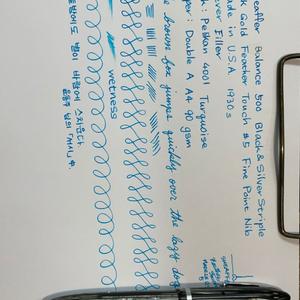 eaffer Balance 500 Black & Silver Striple
k Gold Feather Touch #5 Fine Point Nib
ade in U.S.A. 1930s
ver Filler
k: Pelikan 4001 Turquoise
per: Double A A4 90 gsm
e brown fox jumps quickly over the lazy dog
wetness
밤에도 별이 바람에 스치운다.
윤동주 님의 「서시」 中.